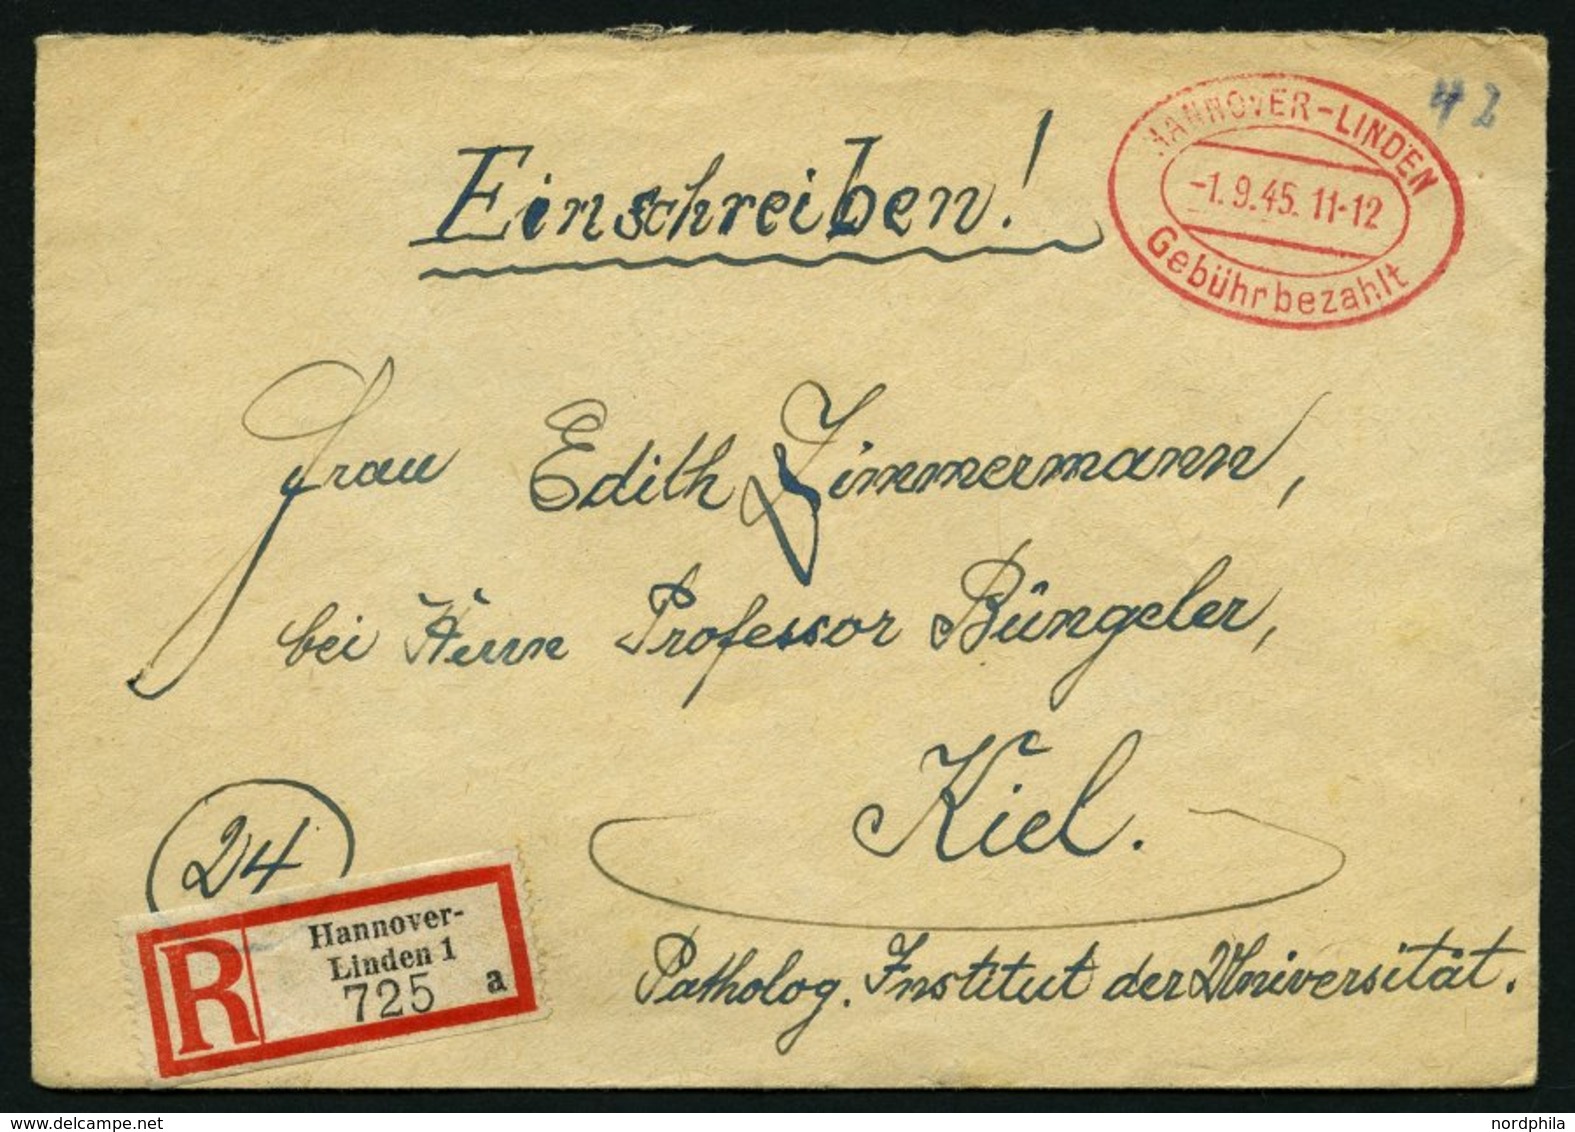 Einschreiben!
42
HANNOVER-LINDEN
-1.9.45. 11-12
Gebühr bezahlt
Frau Edith Zimmermann,
bei Herrn Professor Büngeler,
Kiel.
24
Patholog. Institut der Universität.
R
Hannover-
Linden 1
725 a
delcampe.net
nordphila